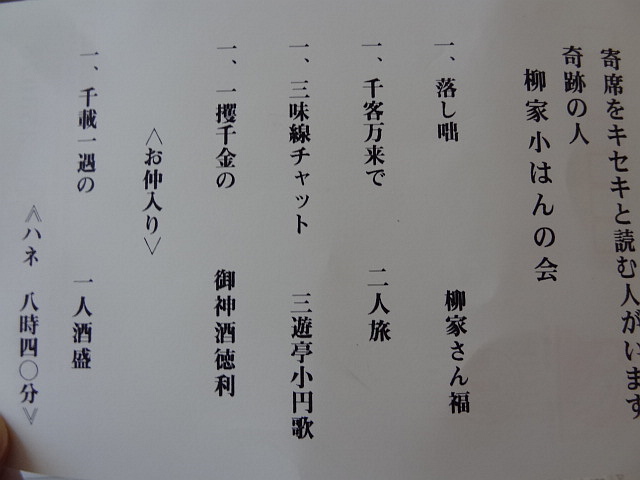 寄席をキセキと読む人がいます
奇跡の人
柳家小はんの会
一、落し咄　柳家さん福
一、千客万来で　二人旅
一、三味線チャット　三遊亭小円歌
一、一攫千金の　御神酒徳利
〈お仲入り〉
一、千載一遇の　一人酒盛
《ハネ　八時四〇分》